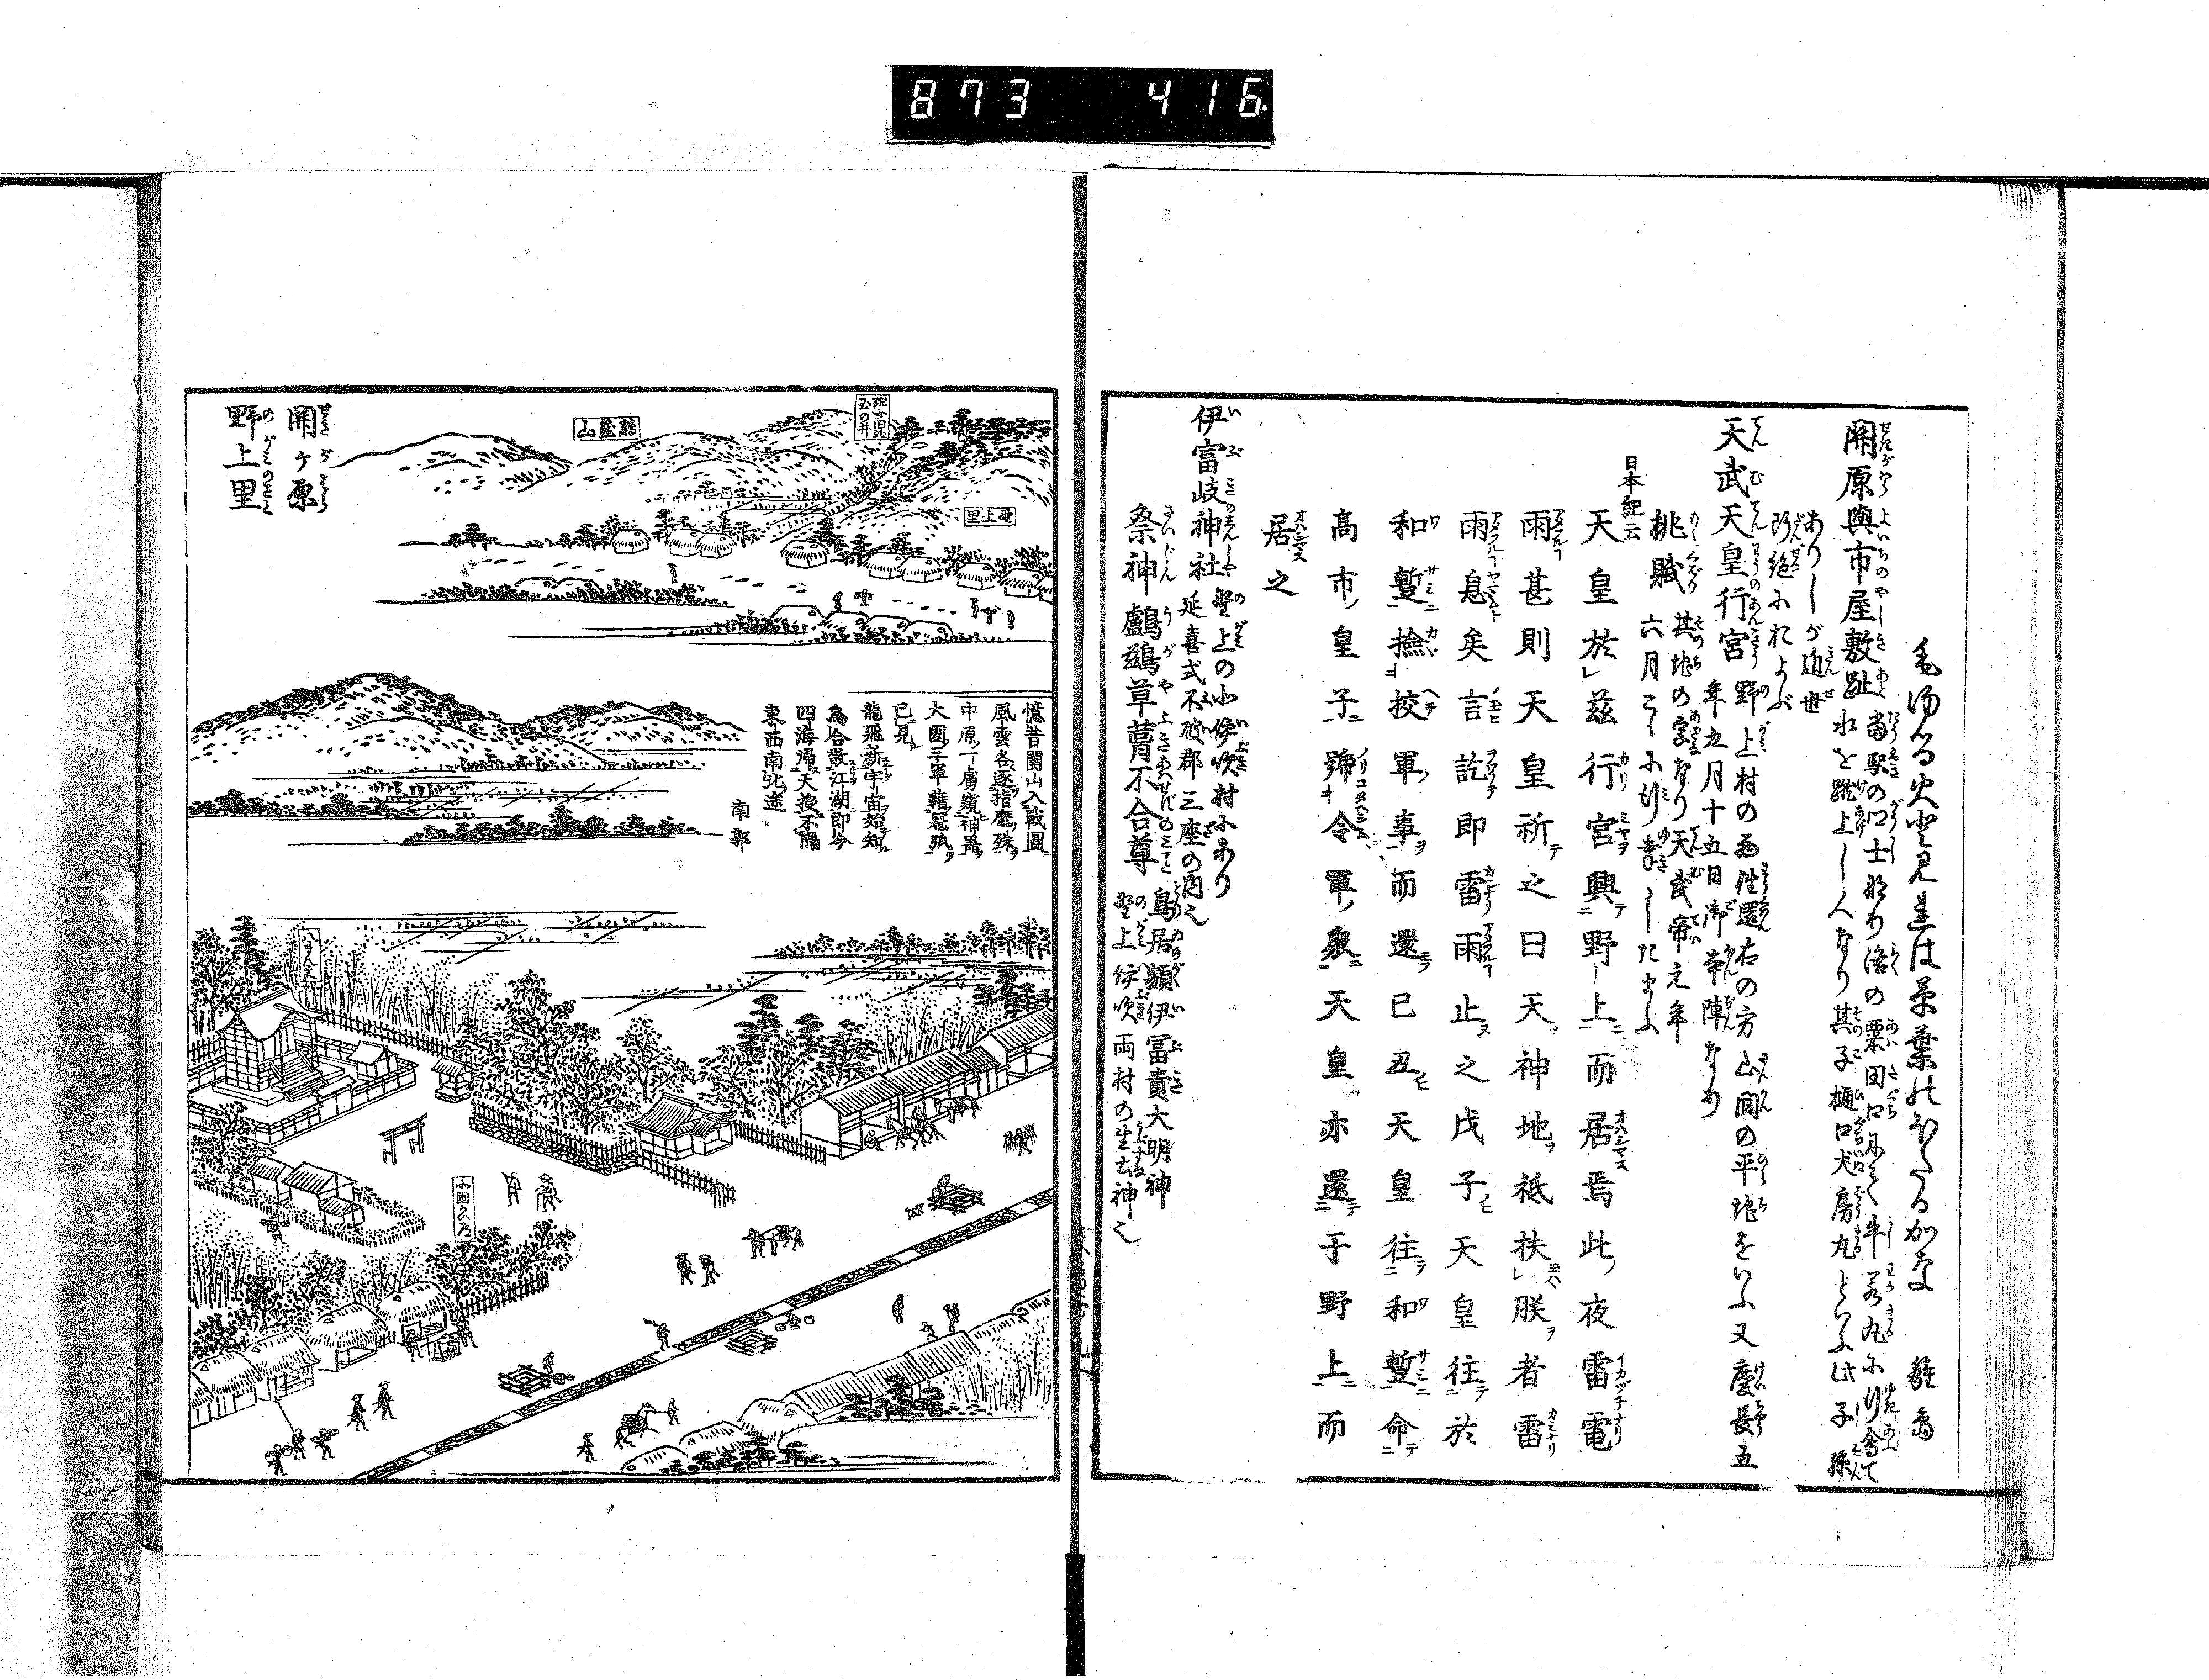 873 416
もゆる火と見しは草葉のほたるかな 雞鳥
関原與市屋敷趾 当駅の口士なり洛の粟田口にて牛若丸に行合て
水を蹴上し人なり其子樋口犬房丸といふ此子孫
ありしが近世
断絶におよぶ
天武天皇行宮 野上村の西往還右の方山間の平地をいふ又慶長五
年九月十五日御本陣なり
桃賦 其地の字なり天武帝元年
六月こゝに行幸したまふ
日本紀云
天皇於茲行宮興野上而居焉此夜雷電
雨甚則天皇祈之曰天神地祇扶朕者雷
雨息矣言訖即雷雨止之戊子天皇往於
和蹔撿挍軍事而還己丑天皇往和蹔命
高市皇子號令軍衆天皇亦還于野上而
居之
伊富岐神社 野上の北伊吹村にあり
延喜式不破郡三座の内也
祭神鸕鷀草葺不合尊 鳥居額伊冨貴大明神
野上伊吹両村の生土神也
関ヶ原
野上里
玉の井
野上里
憶昔関山入戰圖
風雲各逐指麾殊
中原一丁虜窺神器
大國三軍載冠弧
已見
龍飛新宇宙始知
烏合散江湖即今
四海帰天授不隔
東西南北途
南郭
八まん宮